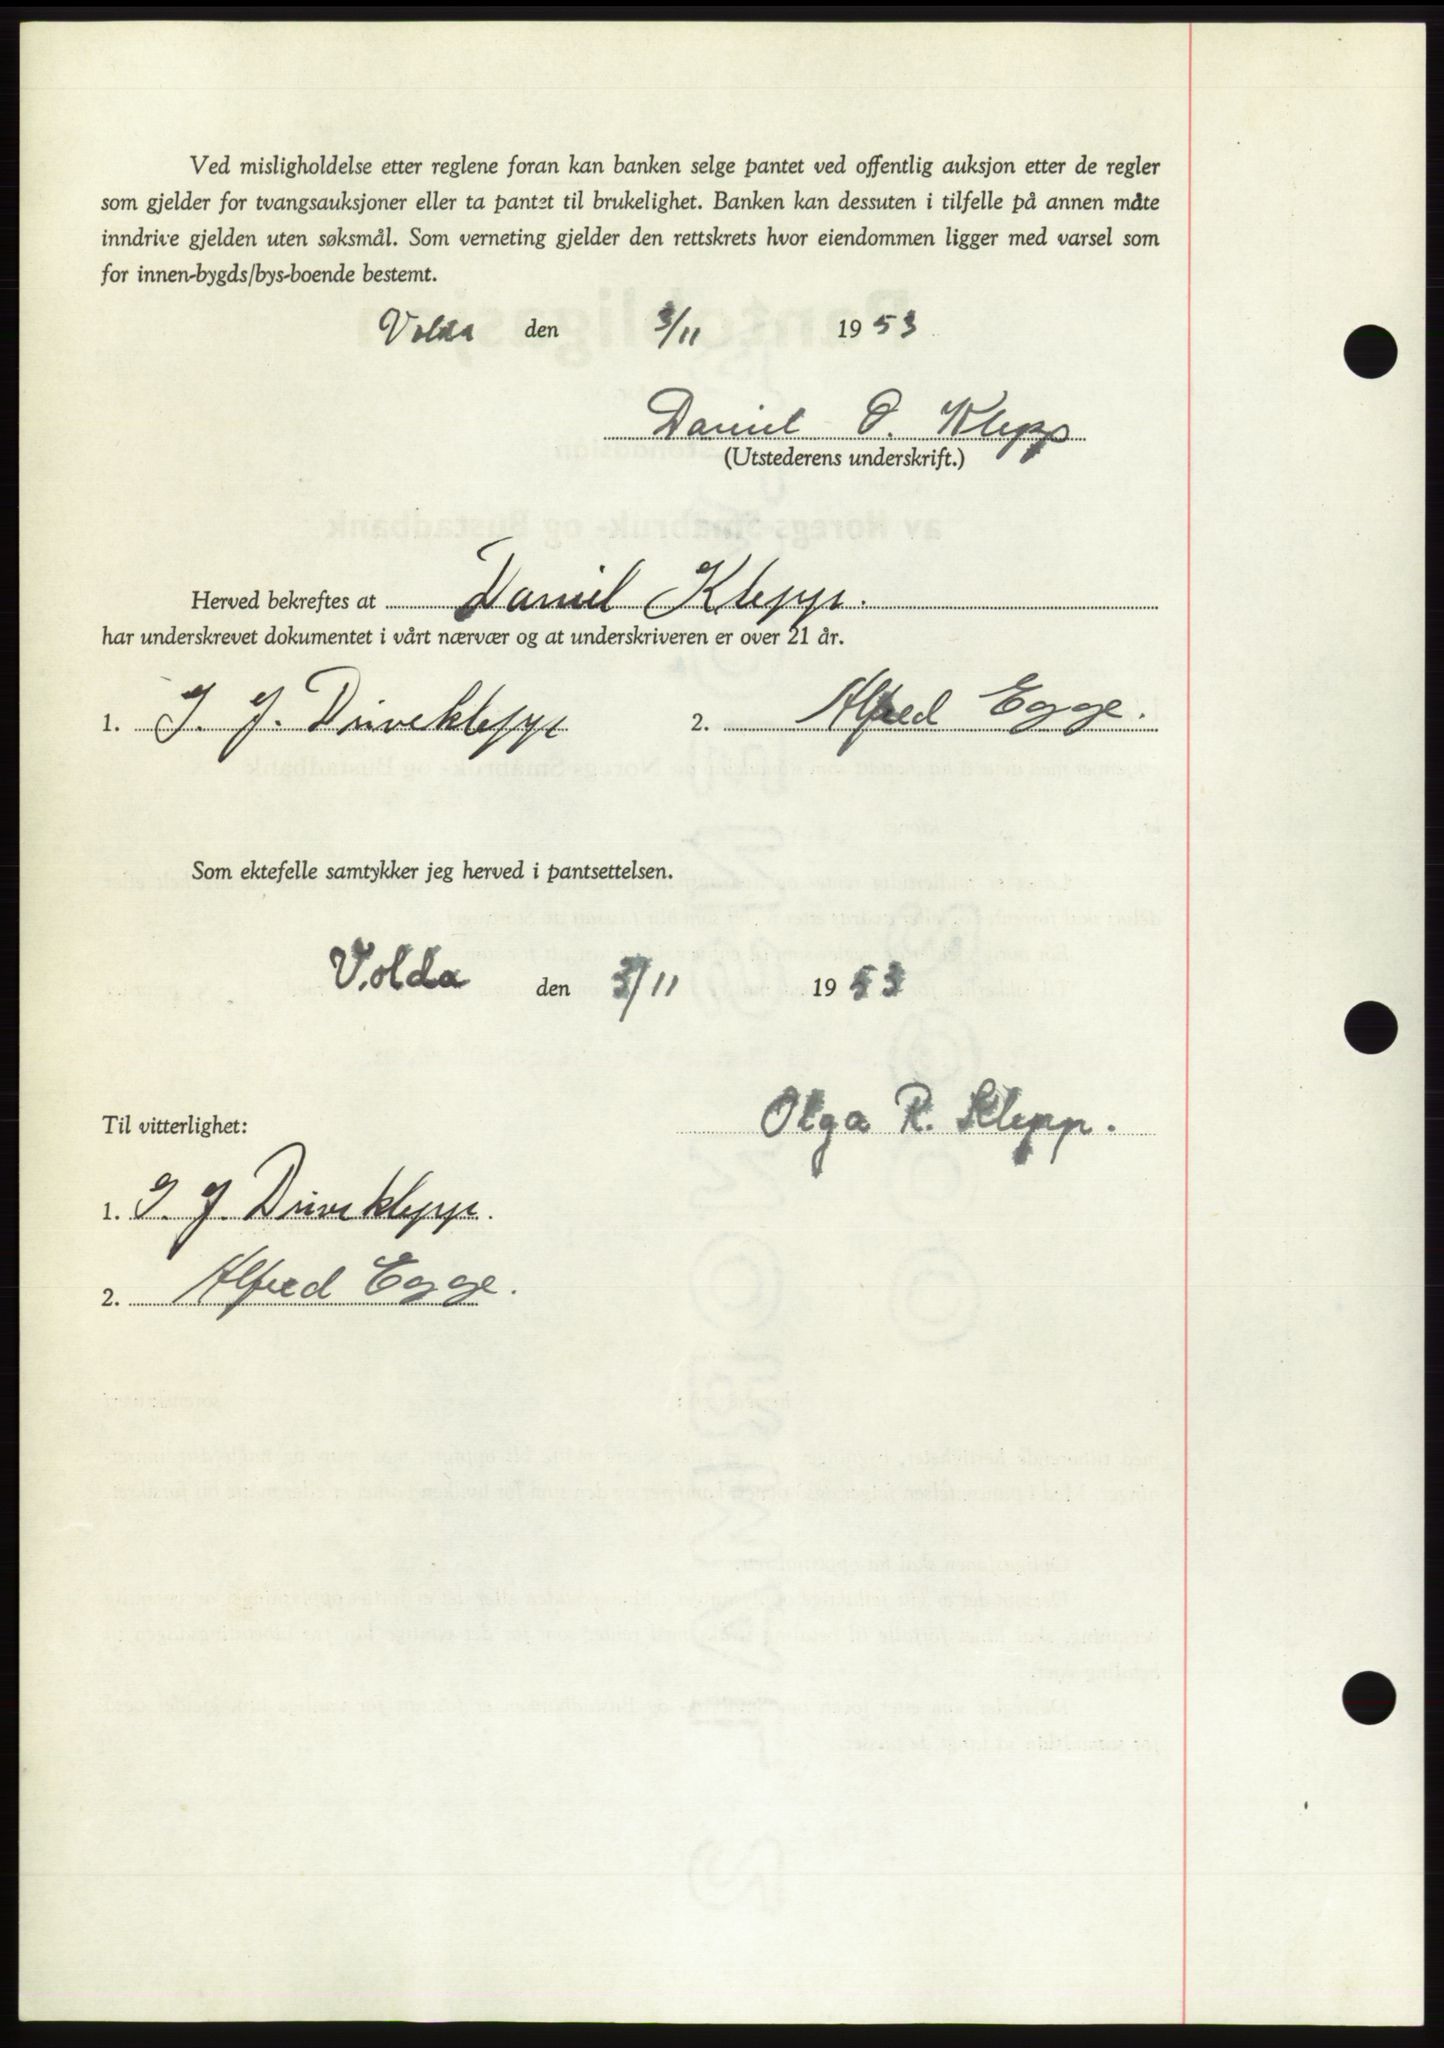 Ved misligholdelse etter reglene foran kan banken selge pantet ved offentlig auksjon etter de regler
som gjelder for tvangsauksjoner eller ta pantet til brukelighet. Banken kan dessuten i tilfelle på annen måte
inndrive gjelden uten søksmål. Som verneting gjelder den rettskrets hvor eiendommen ligger med varsel som
for innen-bygds/bys-boende bestemt.
Volda den 3/11 1953
Daniel O. Klepp
(Utstederens underskrift.)
Herved bekreftes at Daniel Klepp.
har underskrevet dokumentet i vårt nærvær og at underskriveren er over 21 år.
1. I. J. Driveklepp 2. Alfred Egge.
Som ektefelle samtykker jeg herved i pantsettelsen.
Volda den 3/11 1953
Til vitterlighet: Olga R. Klepp.
1. I. J. Driveklepp.
2. Alfred Egge.